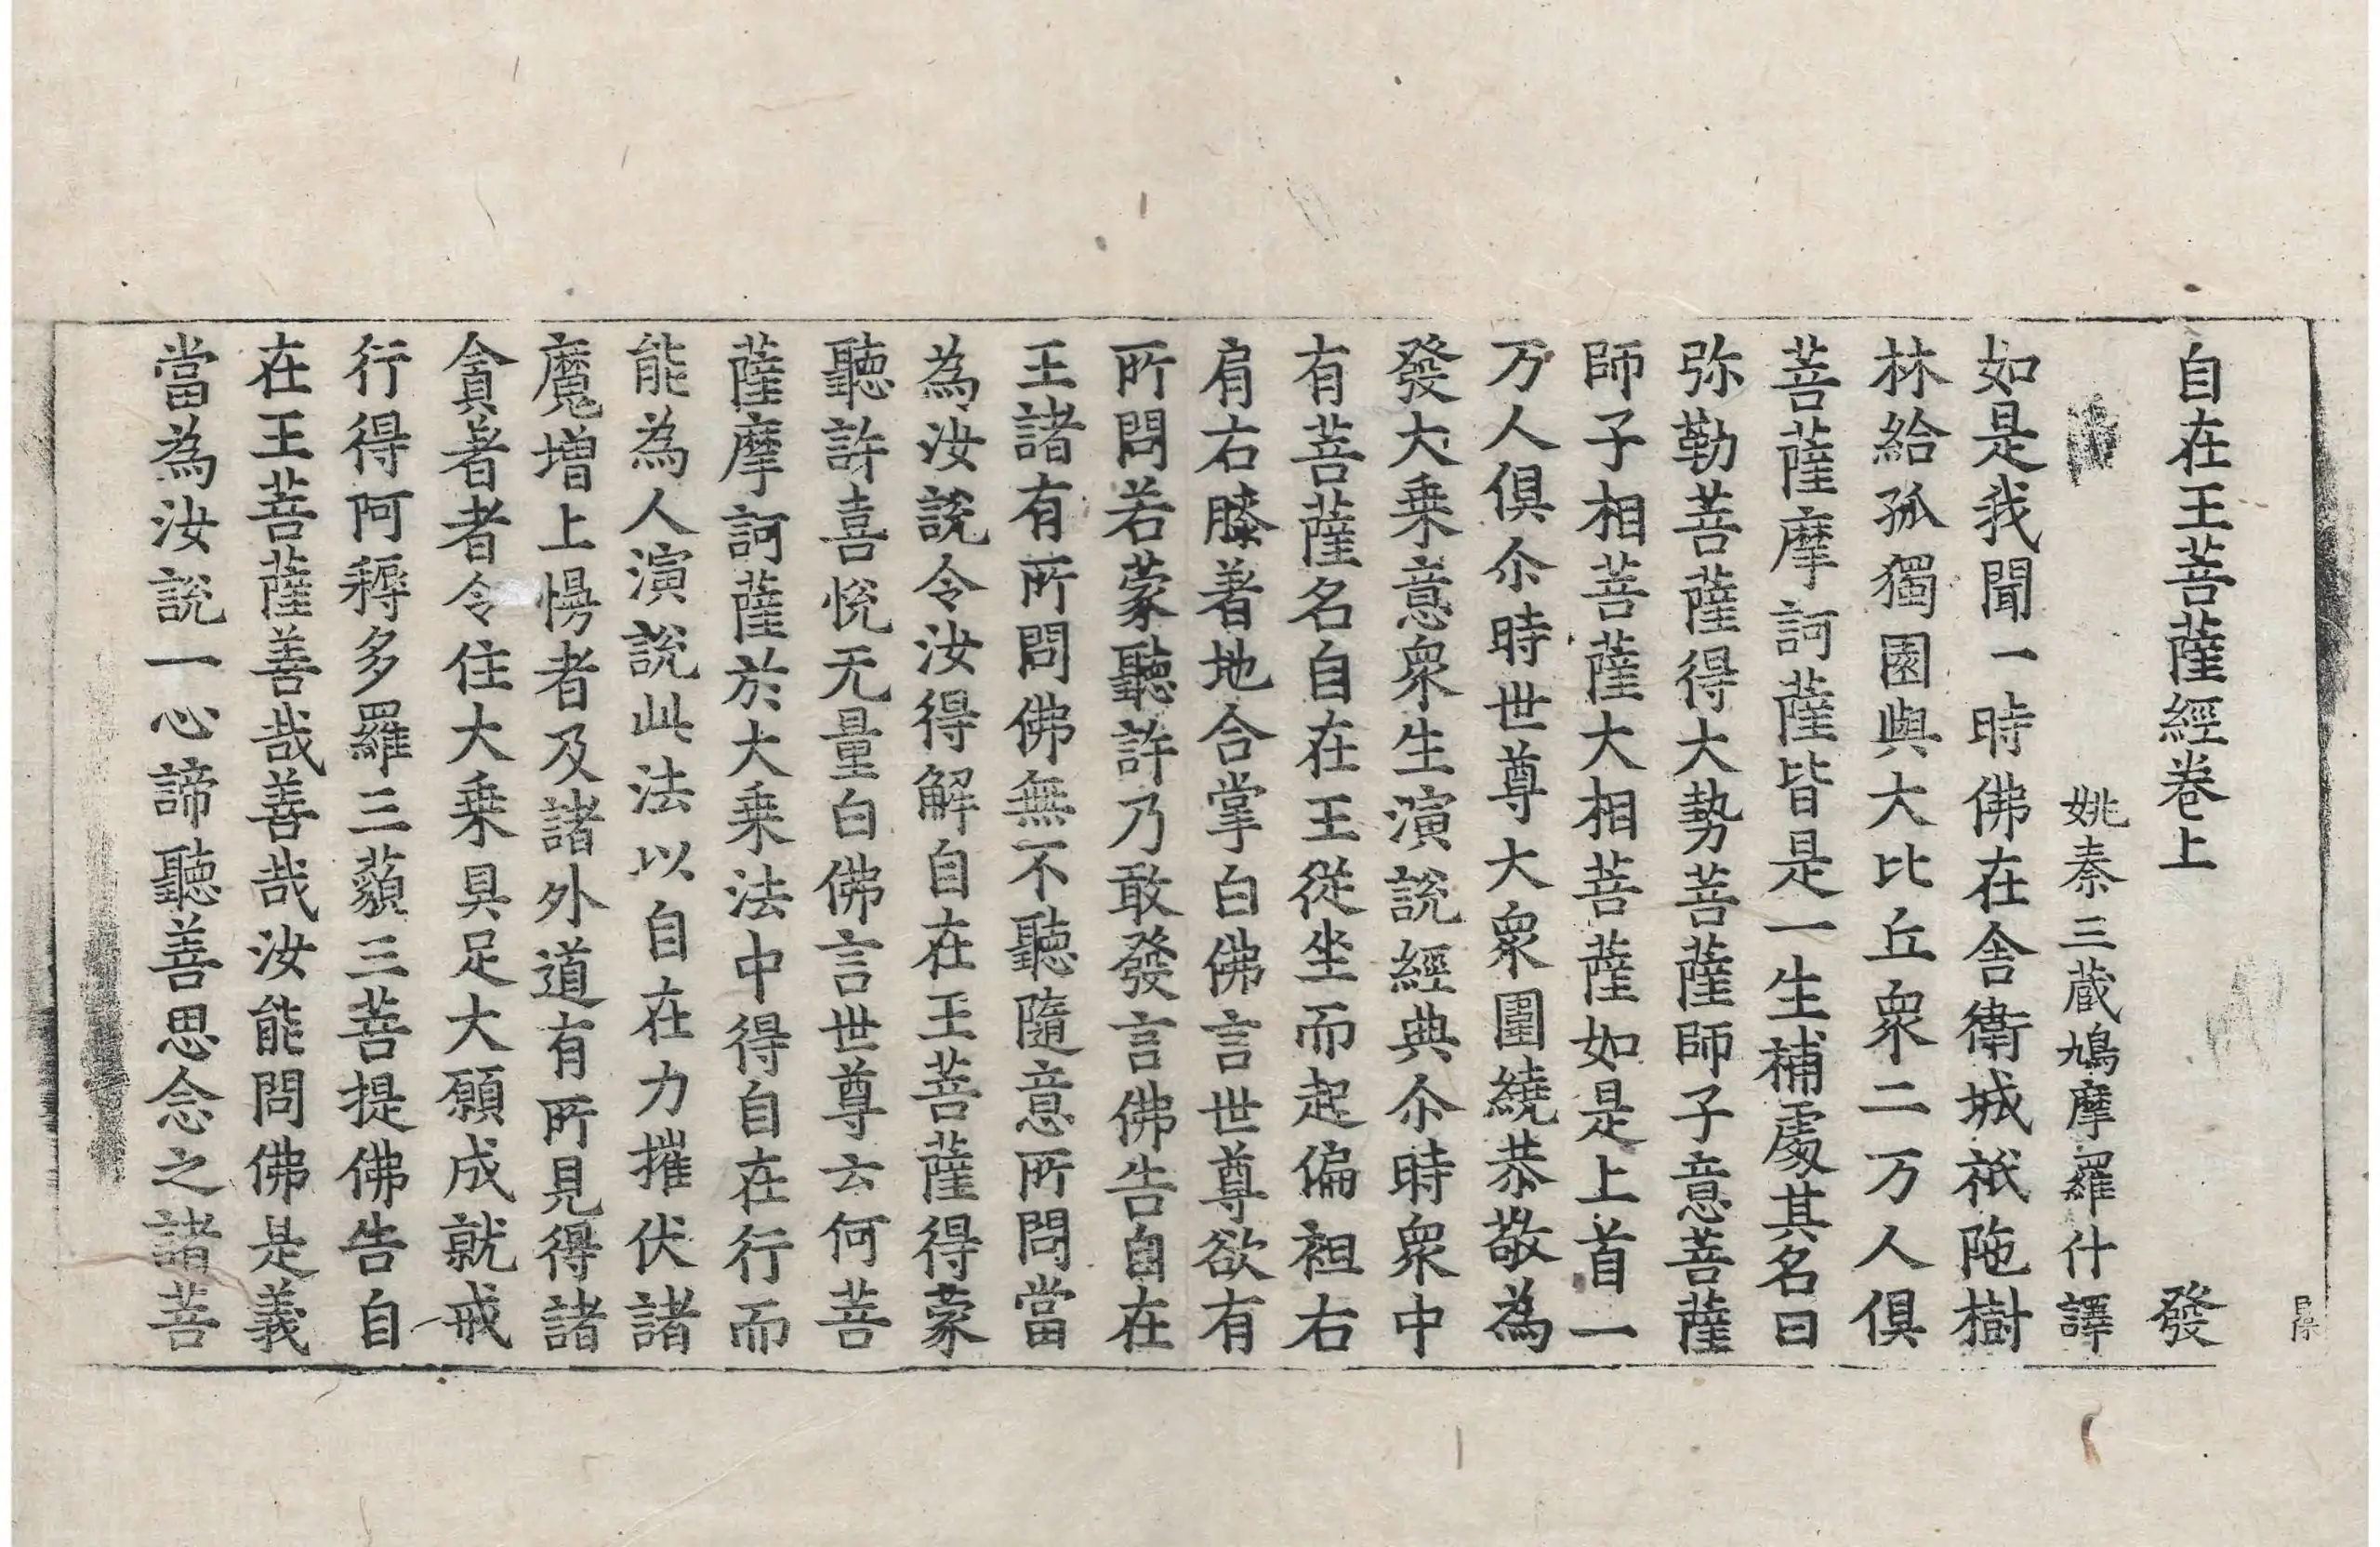 自在王菩薩經卷上 發
姚秦三蔵鳩摩羅什譯
如是我聞一時佛在舍衛城祇陁樹
林給孤獨園與大比丘衆二万人俱
菩薩摩訶薩皆是一生補處其名曰
弥勒菩薩得大勢菩薩師子意菩薩
師子相菩薩大相菩薩如是上首一
万人俱尒時世尊大衆圍繞恭敬為
發大乗意衆生演說經典尒時衆中
有菩薩名自在王從坐而起偏袒右
肩右膝著地合掌白佛言世尊欲有
所問若蒙聽許乃敢發言佛告自在
王諸有所問佛無不聽隨意所問當
為汝說令汝得解自在王菩薩得蒙
聽許喜悅无量白佛言世尊云何菩
薩摩訶薩於大乗法中得自在行而
能為人演說此法以自在力摧伏諸
魔増上慢者及諸外道有所見得諸
貪著者令住大乗具足大願成就戒
行得阿耨多羅三藐三菩提佛告自
在王菩薩善哉善哉汝能問佛是義
當為汝說一心諦聽善思念之諸菩